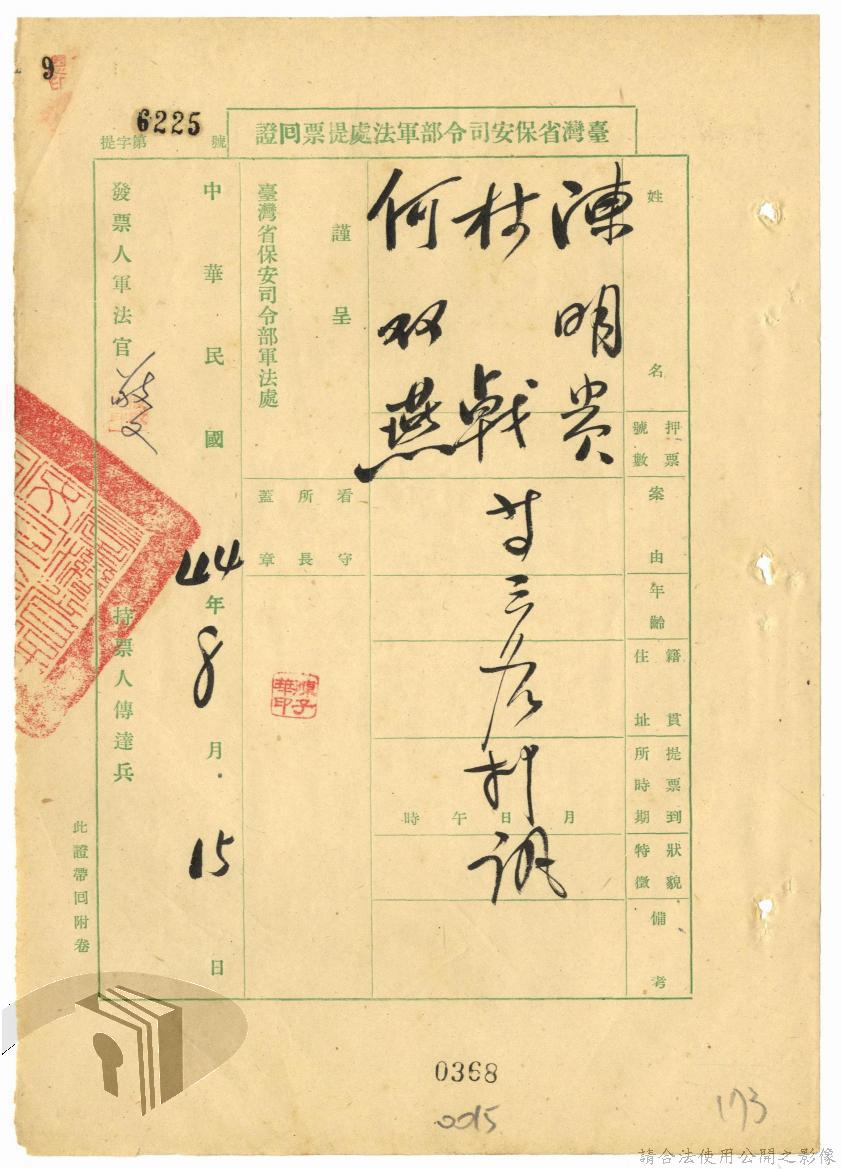 9
提字第6225號
臺灣省保安司令部軍法處提票回證
姓名
押票號數
案由
年齡
籍貫住址
提票到所時期
狀貌特徵
備考
陳明貴
林戟
何双燕
等三名
提訊
月日午時
謹呈
臺灣省保安司令部軍法處
看守所長蓋章
中華民國44年8月15日
發票人軍法官
持票人傳達兵
此證帶回附卷
0368
0015
173
請合法使用公開之影像